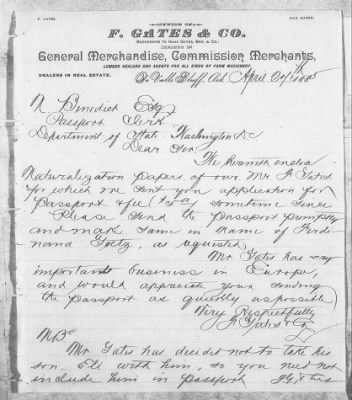 F. GATES.
OFFICE OF
MAX GATES.
F. GATES & CO.
SUCCESSORS TO ISAAC GATES, BRO. & CO.
DEALERS IN
General Merchandise, Commission Merchants,
LUMBER DEALERS AND AGENTS FOR ALL KINDS OF FARM MACHINERY.
DEALERS IN REAL ESTATE.
De Valls Bluff, Ark. April 20th 1885
N Benedict Esq
Passport Clerk
Department of State Washington DC
Dear Sir
We herewith enclose
Naturalization papers of our Mr F Gates
for which we sent you application for
Passport & fee sometime since
Please send the passport promptly
and make same in name of Ferdi-
nand Goetz, as requested
Mr Gates has very
important business in Europe,
and would appreciate your sending
the passport as quickly as possible
Very Respectfully
F Gates & Co
NB
Mr Gates has decided not to take his
son with him, so you need not
include him in passport FG & Co